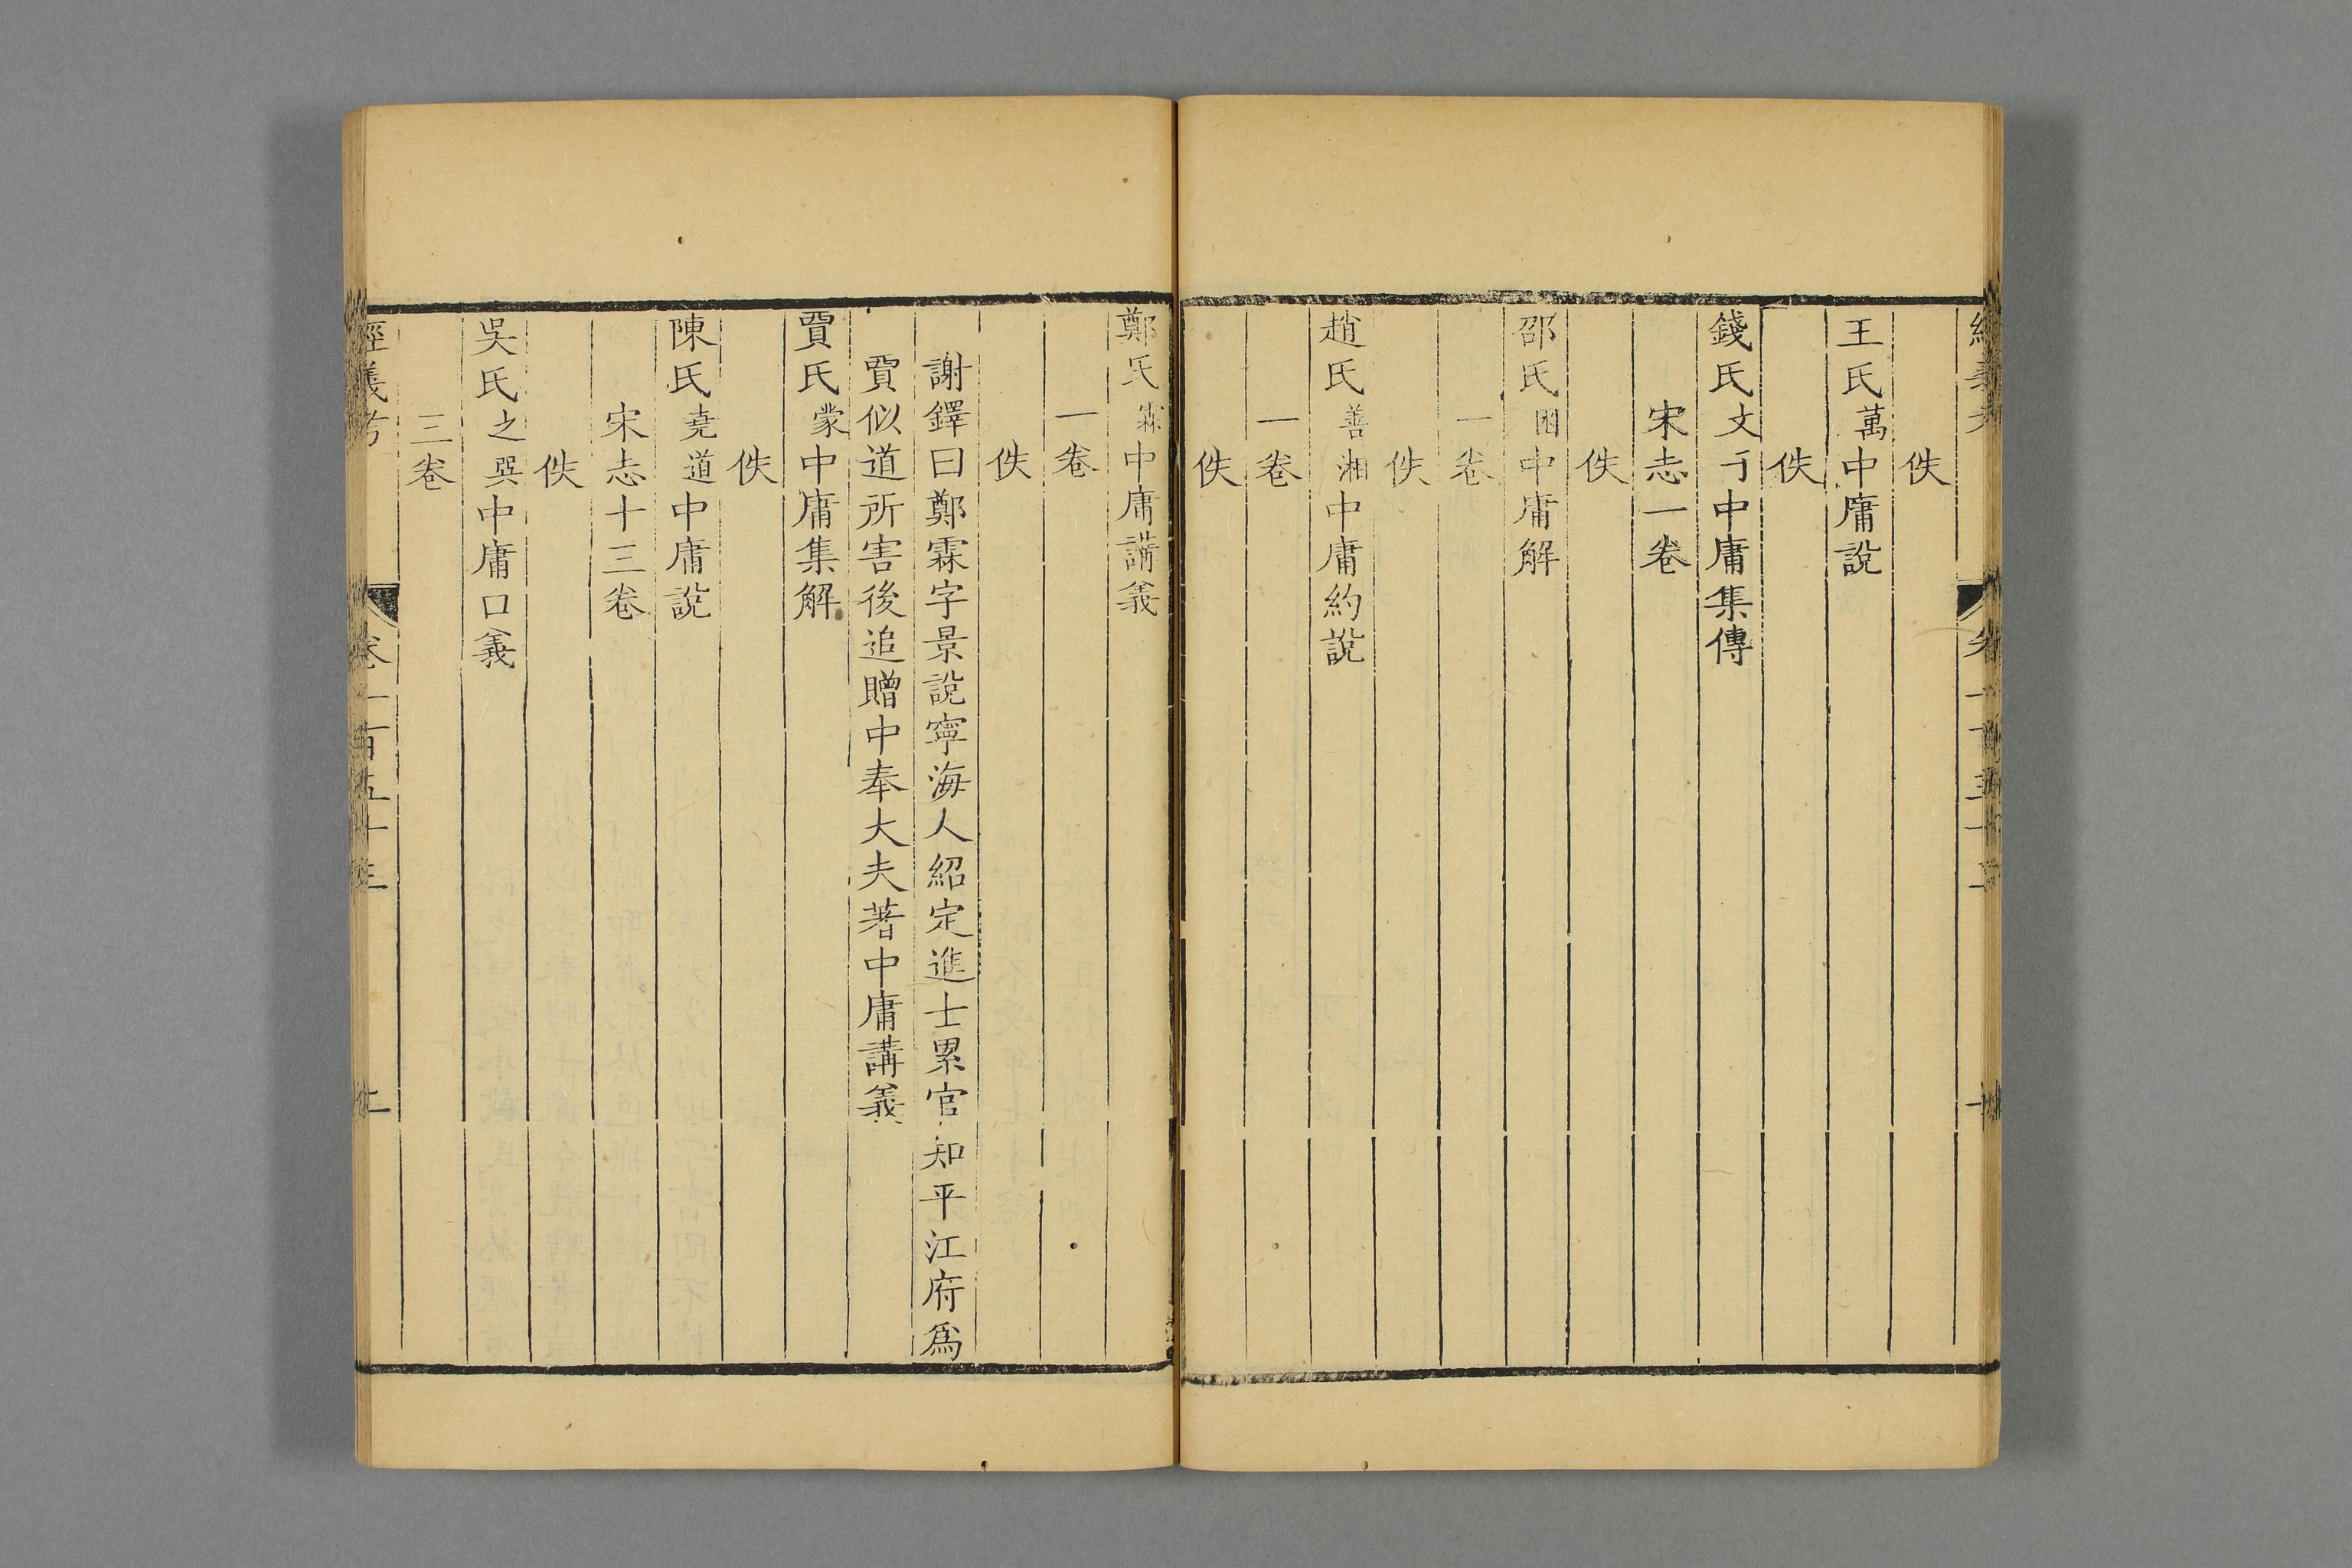 佚
王氏萬中庸說
佚
錢氏文子中庸集傳
宋志一卷
佚
邵氏囦中庸解
一卷
佚
趙氏善湘中庸約說
一卷
佚
鄭氏霖中庸講義
一卷
佚
謝鐸曰鄭霖字景說寧海人紹定進士累官知平江府爲
賈似道所害後追贈中奉大夫著中庸講義
賈氏蒙中庸集解
佚
陳氏堯道中庸說
宋志十三卷
佚
吳氏之巽中庸口義
三卷
經義考
卷一百五十三